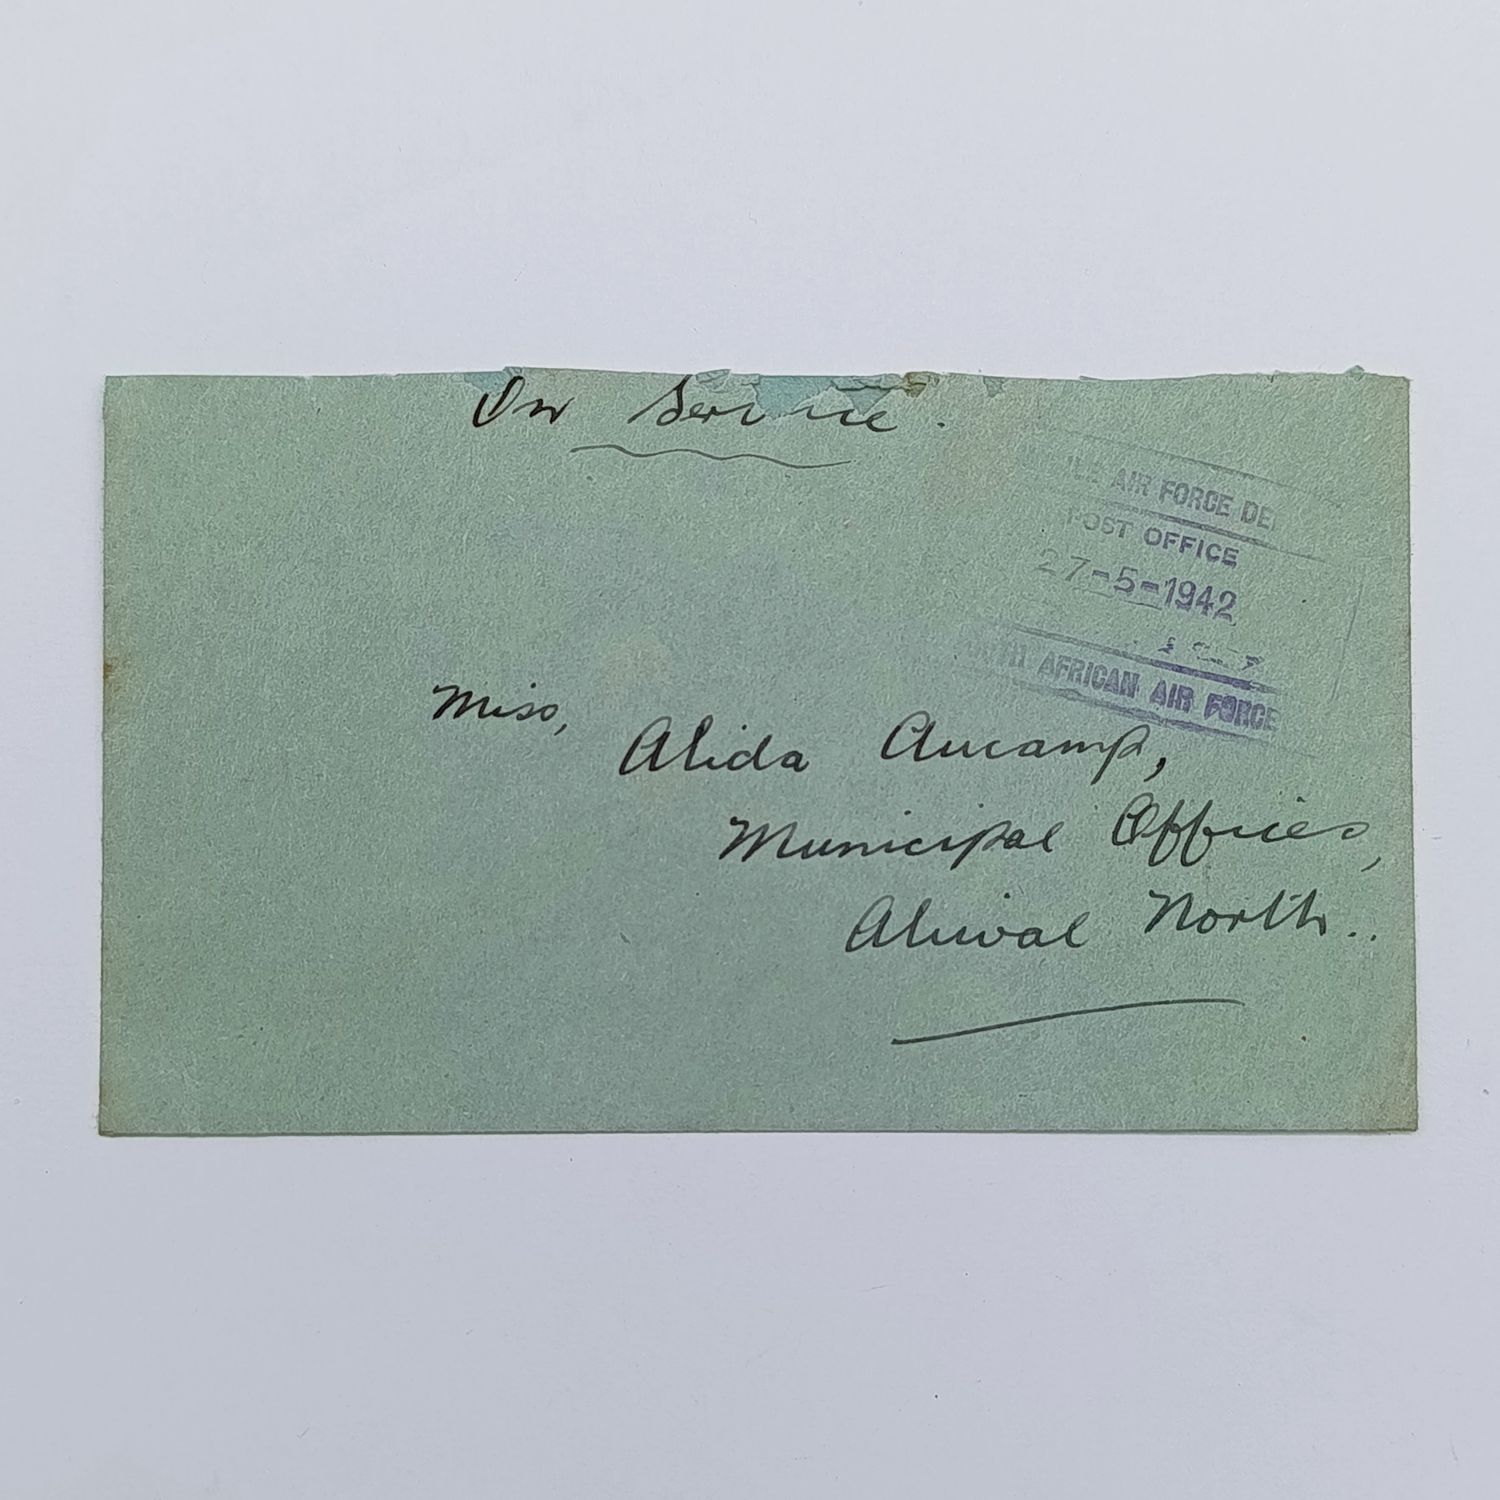 On Service.
AIR FORCE DE
POST OFFICE
27-5-1942
AFRICAN AIR FORCE
Miss,
Alida Aucamp,
Municipal Offices,
Aliwal North..